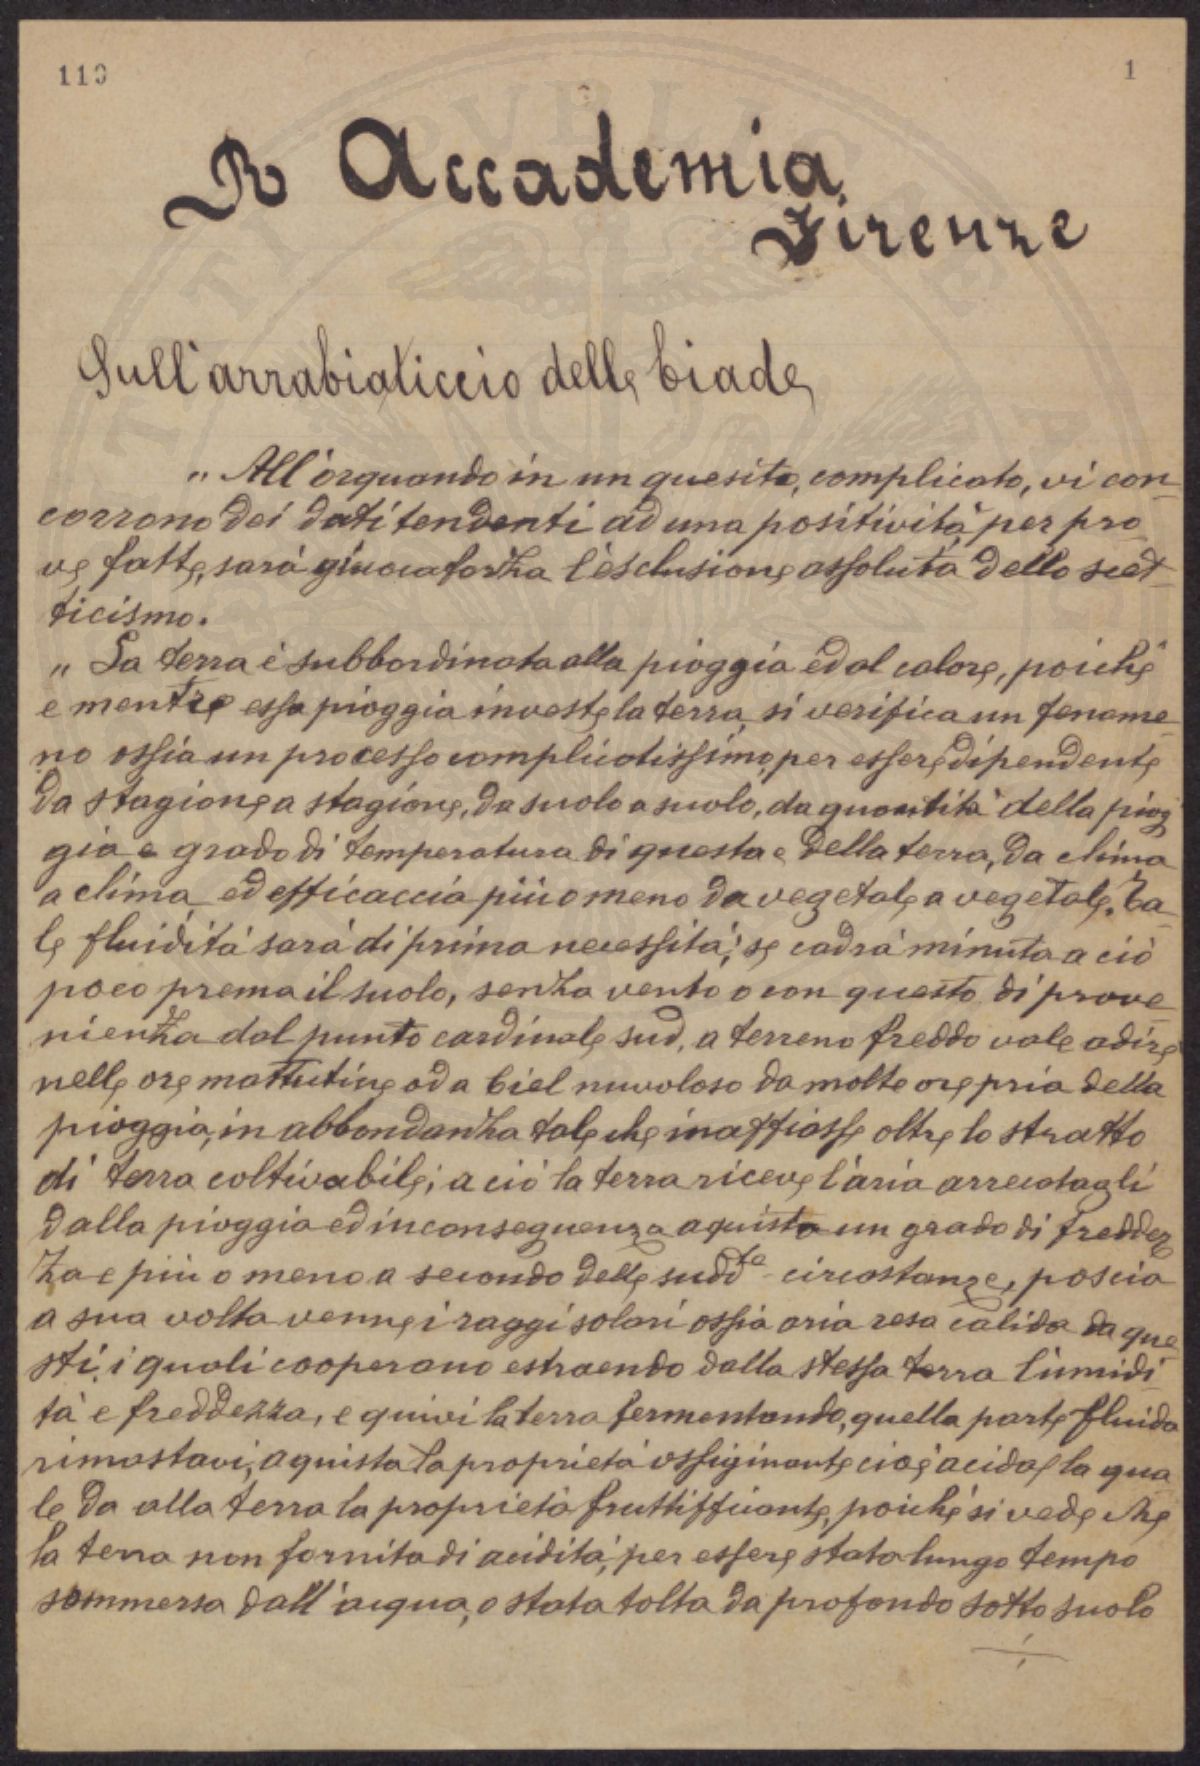 110
1
R Accademia
Firenze
Sull'arrabiaticcio delle biade
„ All'orquando in un quesito, complicato, vi con-
corrono dei dati tendenti ad una positività, per pro-
ve fatte, sarà giuocaforza l'esclusione assoluta dello scet-
ticismo.
„ La terra è subbordinata alla pioggia ed al calore, poichè
e mentre essa pioggia investe la terra, si verifica un fenome-
no ossia un processo complicatissimo, per essere dipendente
da stagione a stagione, da suolo a suolo, da quantità della piog-
gia e grado di temperatura di questa e della terra, da clima
a clima ed efficaccia più o meno da vegetale a vegetale. Ta-
le fluidità sarà di prima necessità; se cadrà minuta a ciò
poco prema il suolo, senza vento o con questo di prove-
nienza dal punto cardinale sud, a terreno freddo vale a dire
nelle ore mattutine od a ciel nuvoloso da molte ore pria della
pioggia, in abbondanza tale che inaffiasse oltre lo stratto
di terra coltivabile; a ciò la terra riceve l'aria arrecatagli
dalla pioggia ed inconseguenza aquista un grado di freddez-
za e più o meno a secondo delle sudd.te circostanze, poscia
a sua volta venne i raggi solari ossia aria resa calida da que-
sti, i quali cooperano estraendo dalla stessa terra l'umidi-
tà e freddezza, e quivi la terra fermentando, quella parte fluida
rimastavi, aquista la proprietà ossiginante cioè acida, la qua-
le da alla terra la proprietà fruttifficante, poichè si vede che
la terra non fornita di acidità, per essere stata lungo tempo
sommersa dall'acqua, o stata tolta da profondo sotto suolo